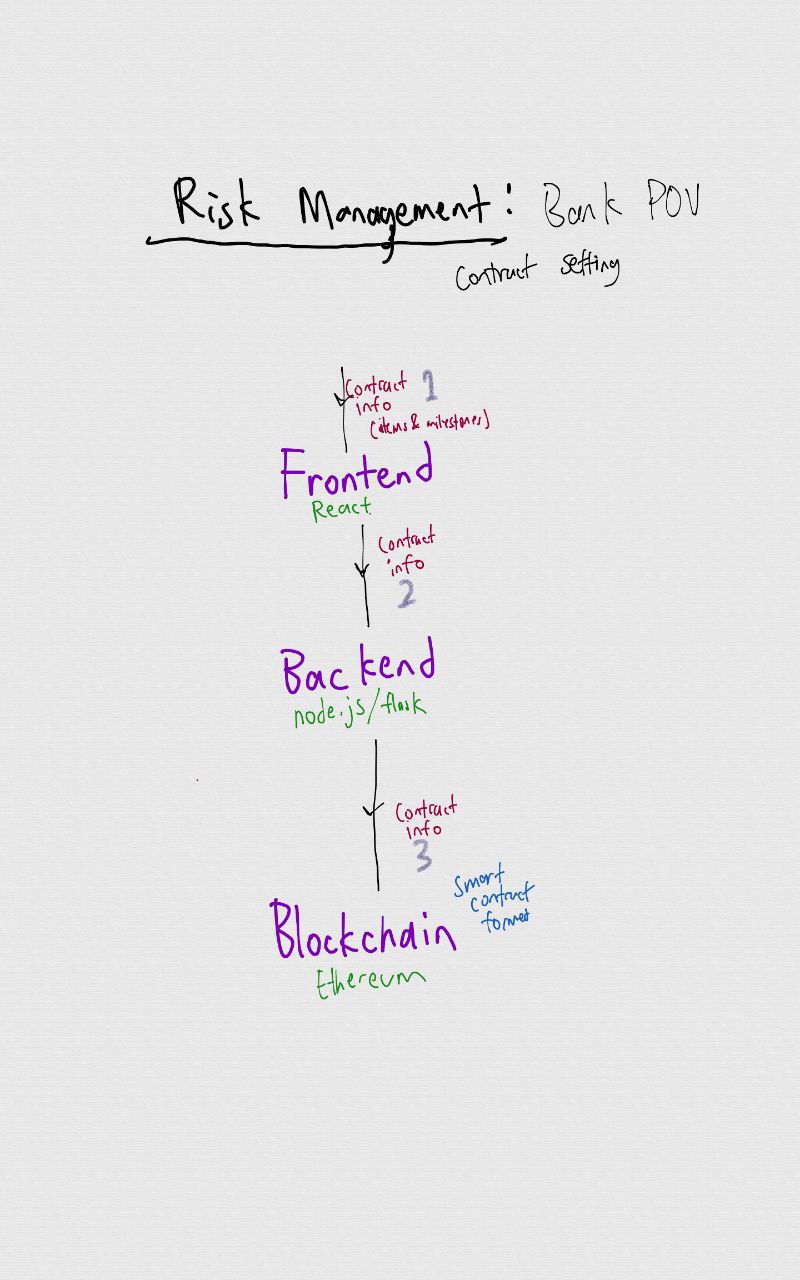 Risk Management: Bank POV
Contract setting
Contract 1
info
(items & milestones)
Frontend
React
Contract
info
2
Backend
node.js/flask
Contract
info
3
Smart
contract
format
Blockchain
Ethereum